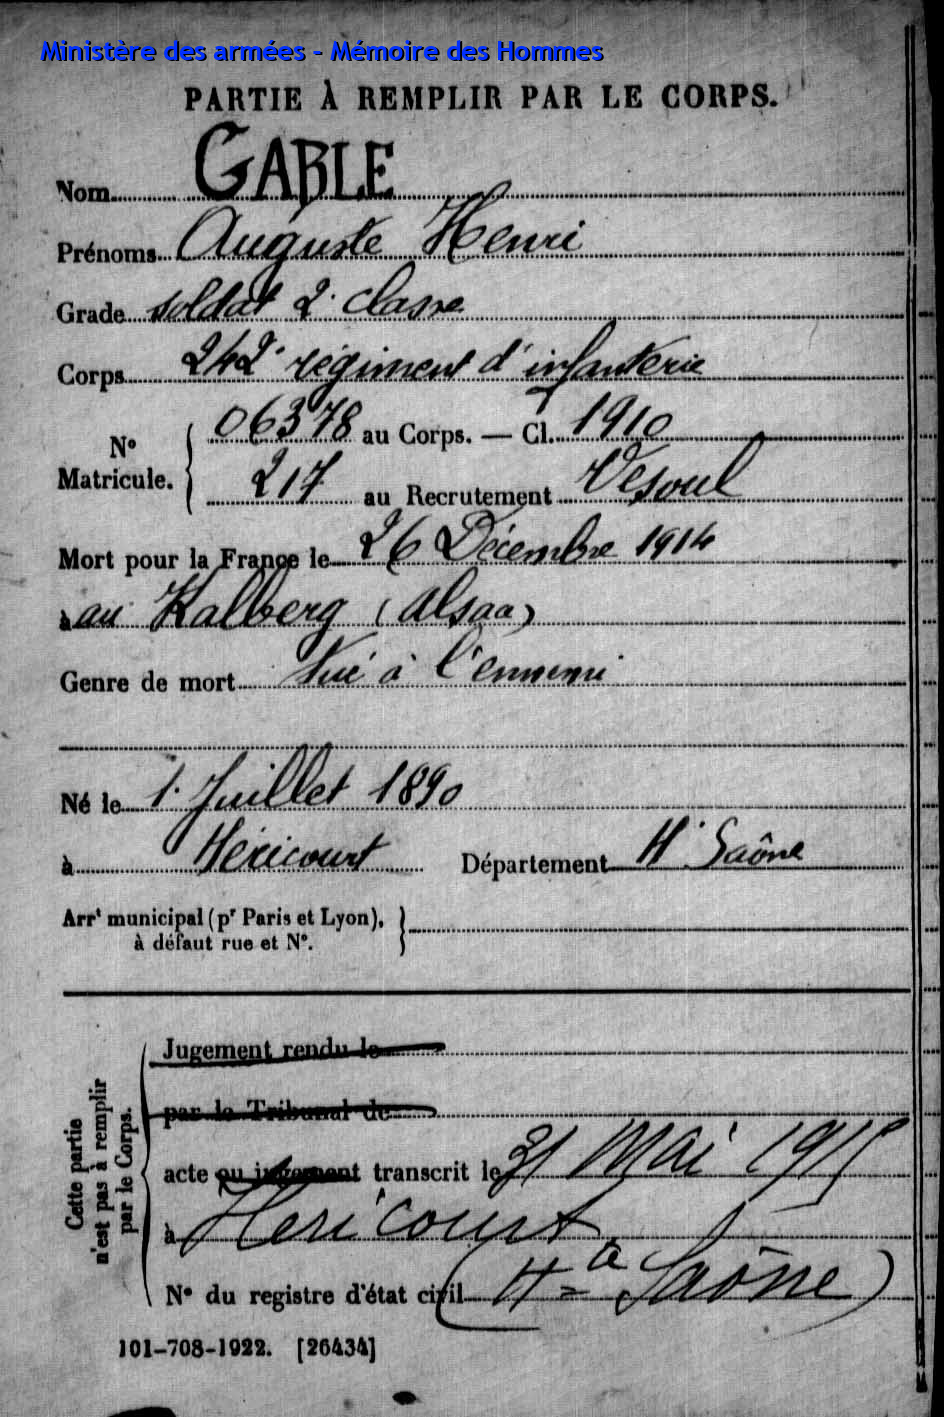 Ministère des armées - Mémoire des Hommes
PARTIE À REMPLIR PAR LE CORPS.
Nom GABLE
Prénoms Auguste Henri
Grade soldat 2e classe
Corps 242e régiment d'infanterie
N° Matricule. 06378 au Corps. — Cl. 1910
217 au Recrutement Vesoul
Mort pour la France le 26 Décembre 1914
à au Kalberg (Alsace)
Genre de mort Tué à l'ennemi
Né le 1er Juillet 1890
à Héricourt Département Hte Saône
Arrt municipal (pr Paris et Lyon),
à défaut rue et N°.
Cette partie
n'est pas à remplir
par le Corps.
Jugement rendu le
par le Tribunal de
acte ou jugement transcrit le 31 Mai 1915
à Héricourt
N° du registre d'état civil (Hte Saône)
101-708-1922. [26434]